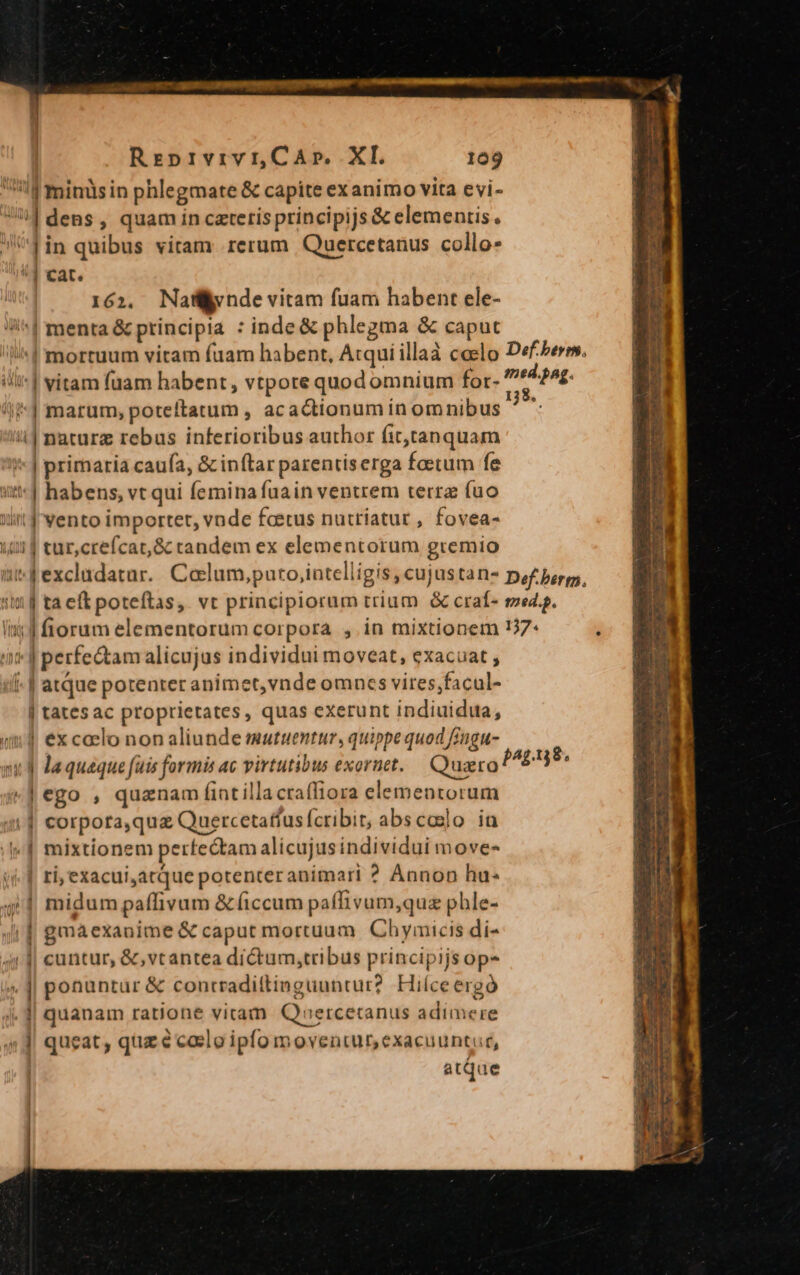 REDIVIVI, CAP. XI. 109
minùs in phlegmate & capite exanimo vita evi-
dens, quam in cæteris principijs & elementis.
in quibus vitam rerum Quercetanus collo-
cat.
162. vnde vitam ſuam habent ele-
menta & principia : inde & phlegma & caput
mortuum vitam ſuam habent, Atqui illa à cœlo Def. herm.
vitam ſuam habent, vtpote quod omnium for- med. pag.
marum, poteſtatum, ac actionum in omnibus 138.
naturæ rebus inferioribus author ſit, tanquam
primaria cauſa, & inſtar parentis erga fœtum ſe
habens, vt qui ſemina ſua in ventrem terræ ſuo
vento importet, vnde fœtus nutriatur, fovea-
tur, creſcat, & tandem ex elementorum gremio
excludatur. Cœlum, puto, intelligis, cujus tan- Def. herm.
ta eſt poteſtas, vt principiorum trium & craſ- med. p.
ſiorum elementorum corpora, in mixtionem 137.
perfectam alicujus individui moveat, exacuat,
atque potenter animet, vnde omnes vires, facul-
tates ac proprietates, quas exerunt indiuidua,
ex cœlo non aliunde mutuentur, quippe quod ſingu-
la quæque ſuis formis ac virtutibus exornet. Quæro pag. 138.
ego, quænam ſint illa craſſiora elementorum
corpora, quæ Quercetanus ſcribit, abs cœlo in
mixtionem perfectam alicujus individui move-
ri, exacui, atque potenter animari ? Annon hu-
midum paſſivum & ſiccum paſſivum, quæ phle-
gma exanime & caput mortuum Chymicis di-
cuntur, &, vt antea dictum, tribus principijs op-
ponuntur & contradiſtinguuntur? Hiſce ergò
quanam ratione vitam Quercetanus adimere
queat, quæ è cœlo ipſo moventur, exacuuntur,
atque